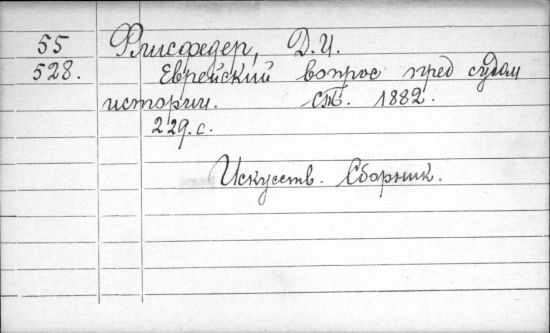 55 Флисфедер, Д.И.
528. Еврейский вопрос пред судом
истории. СПБ. 1882.
229.с.
Искусств. Сборник.